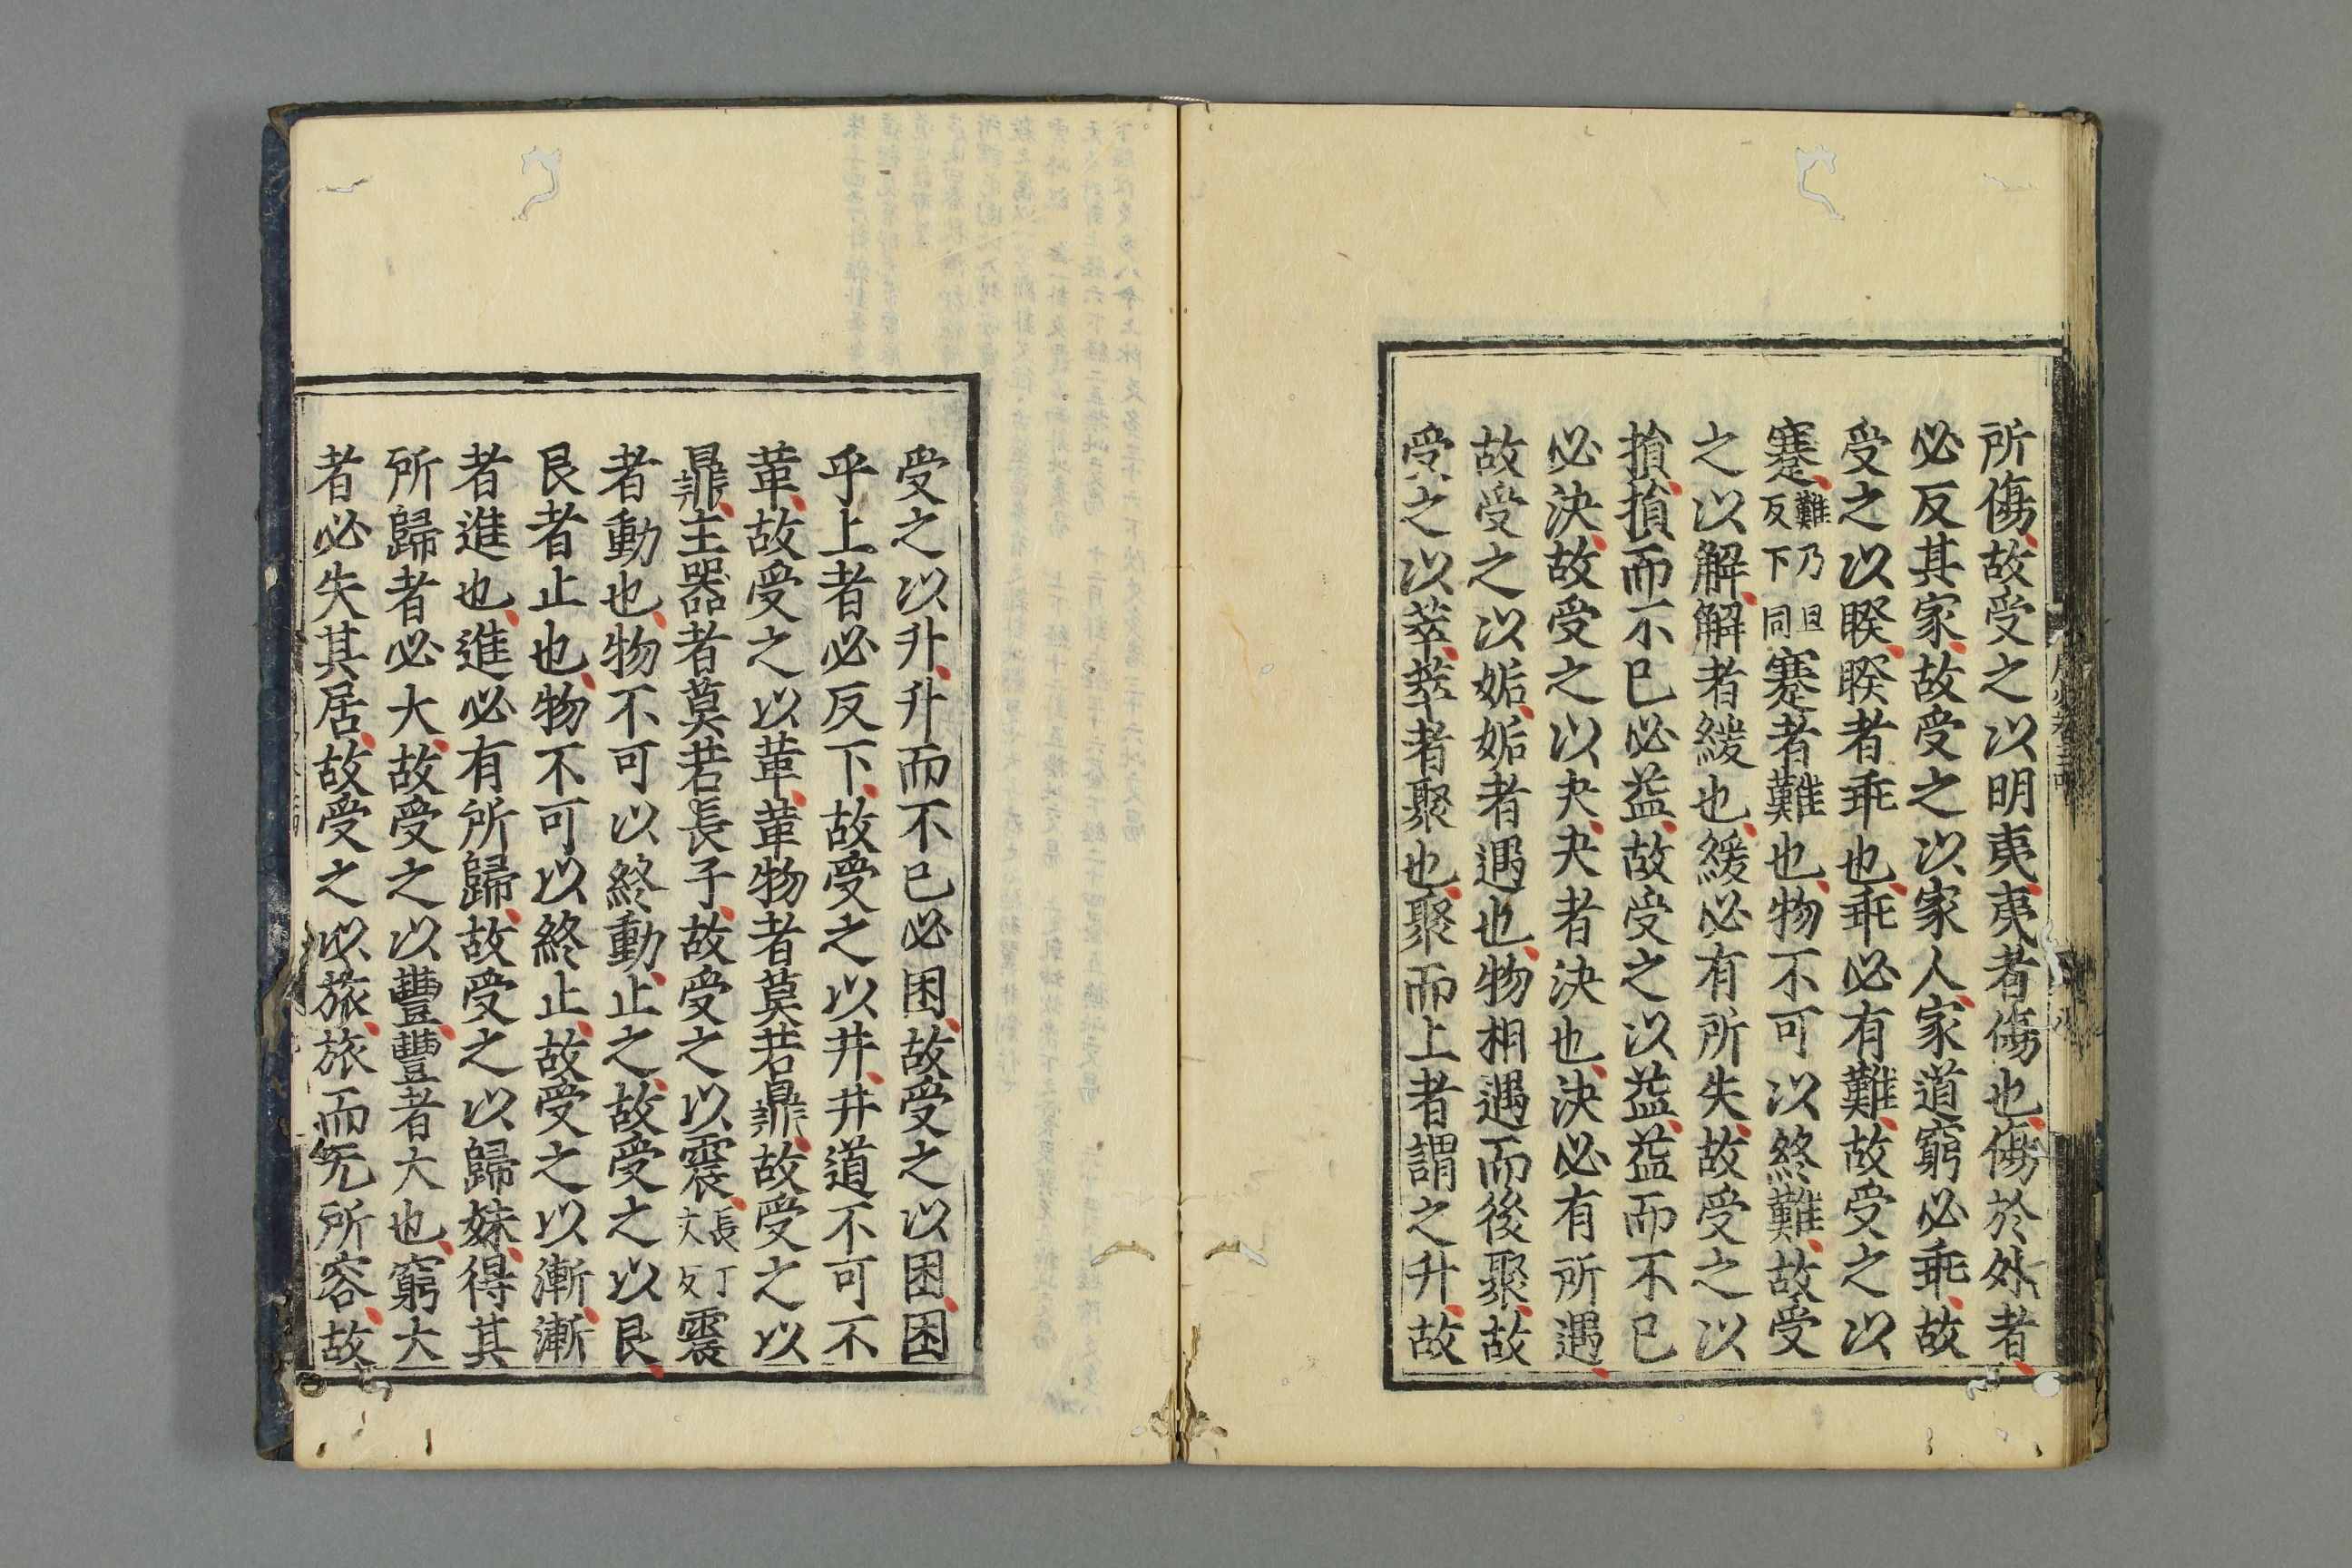 所傷故受之以明夷夷者傷也傷於外者
必反其家故受之以家人家道窮必乖故
受之以睽睽者乖也乖必有難故受之以
蹇難乃旦反下同蹇者難也物不可以終難故受
之以解解者緩也緩必有所失故受之以
損損而不已必益故受之以益益而不已
必決故受之以夬夬者決也決必有所遇
故受之以姤姤者遇也物相遇而後聚故
受之以萃萃者聚也聚而上者謂之升故
受之以升升而不已必困故受之以困困
乎上者必反下故受之以井井道不可不
革故受之以革革物者莫若鼎故受之以
鼎主器者莫若長子故受之以震長丁丈反震
者動也物不可以終動止之故受之以艮
艮者止也物不可以終止故受之以漸漸
者進也進必有所歸故受之以歸妹得其
所歸者必大故受之以豐豐者大也窮大
者必失其居故受之以旅旅而无所容故